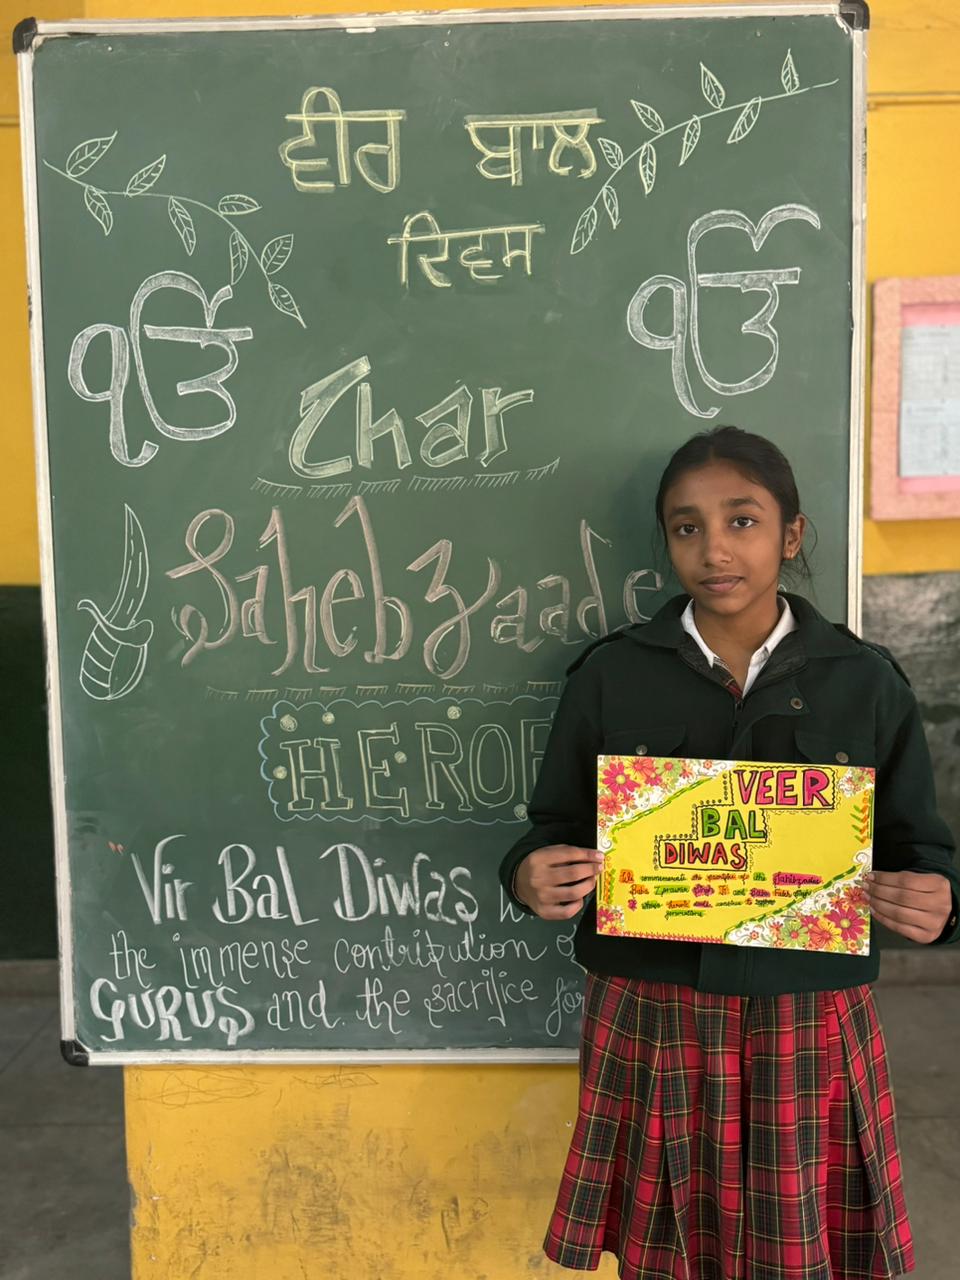 ਵੀਰ ਬਾਲ
ਦਿਵਸ
ੴ
ੴ
Char
Sahebzaade
HEROE
"Vir Bal Diwas
the immense contribution o
GURUS and the sacrifice for
VEER
BAL
DIWAS
We commemorate the sacrifice of the Sahibzades
Baba Zorawar Singh Ji and Baba Fateh Singh
Ji whose heroic continue to inspire
generations